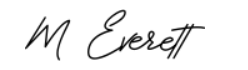 M Everett